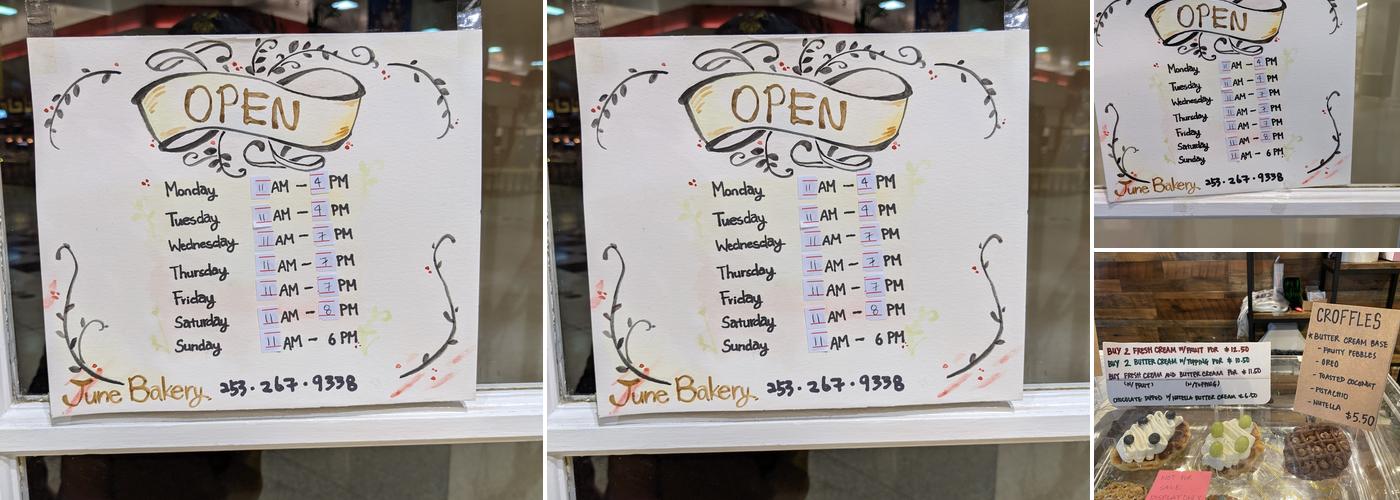 OPEN
Monday 11 AM – 4 PM
Tuesday 11 AM – 4 PM
Wednesday 11 AM – 7 PM
Thursday 11 AM – 7 PM
Friday 11 AM – 7 PM
Saturday 11 AM – 8 PM
Sunday 11 AM – 6 PM
June Bakery 253·267·9338
OPEN
Monday 11 AM – 4 PM
Tuesday 11 AM – 4 PM
Wednesday 11 AM – 7 PM
Thursday 11 AM – 7 PM
Friday 11 AM – 7 PM
Saturday 11 AM – 8 PM
Sunday 11 AM – 6 PM
June Bakery 253·267·9338
OPEN
Monday 11 AM – 4 PM
Tuesday 11 AM – 4 PM
Wednesday 11 AM – 7 PM
Thursday 11 AM – 7 PM
Friday 11 AM – 7 PM
Saturday 11 AM – 8 PM
Sunday 11 AM – 6 PM
June Bakery 253·267·9338
BUY 2 FRESH CREAM W/FRUIT FOR $12.50
BUY 2 BUTTER CREAM W/TOPPING FOR $10.50
BUY FRESH CREAM AND BUTTER CREAM FOR $11.50
(W/FRUIT) (W/TOPPING)
CHOCOLATE DIPPED W/NUTELLA BUTTER CREAM $6.50
CROFFLES
* BUTTER CREAM BASE
- FRUITY PEBBLES
- OREO
- TOASTED COCONUT
- PISTACHIO
- NUTELLA
$5.50
NOT FOR
SALE
DISPLAY ONLY